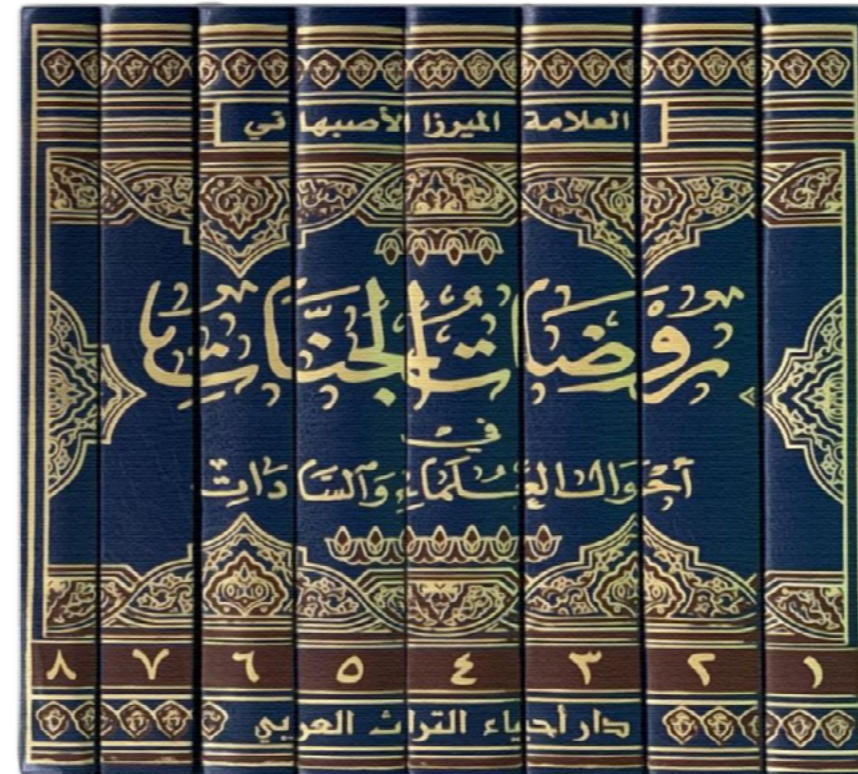 العلامة الميرزا الأصبهاني
روضات الجنات
في
أحوال العلماء والسادات
١ ٢ ٣ ٤ ٥ ٦ ٧ ٨
دار أحياء التراث العربي